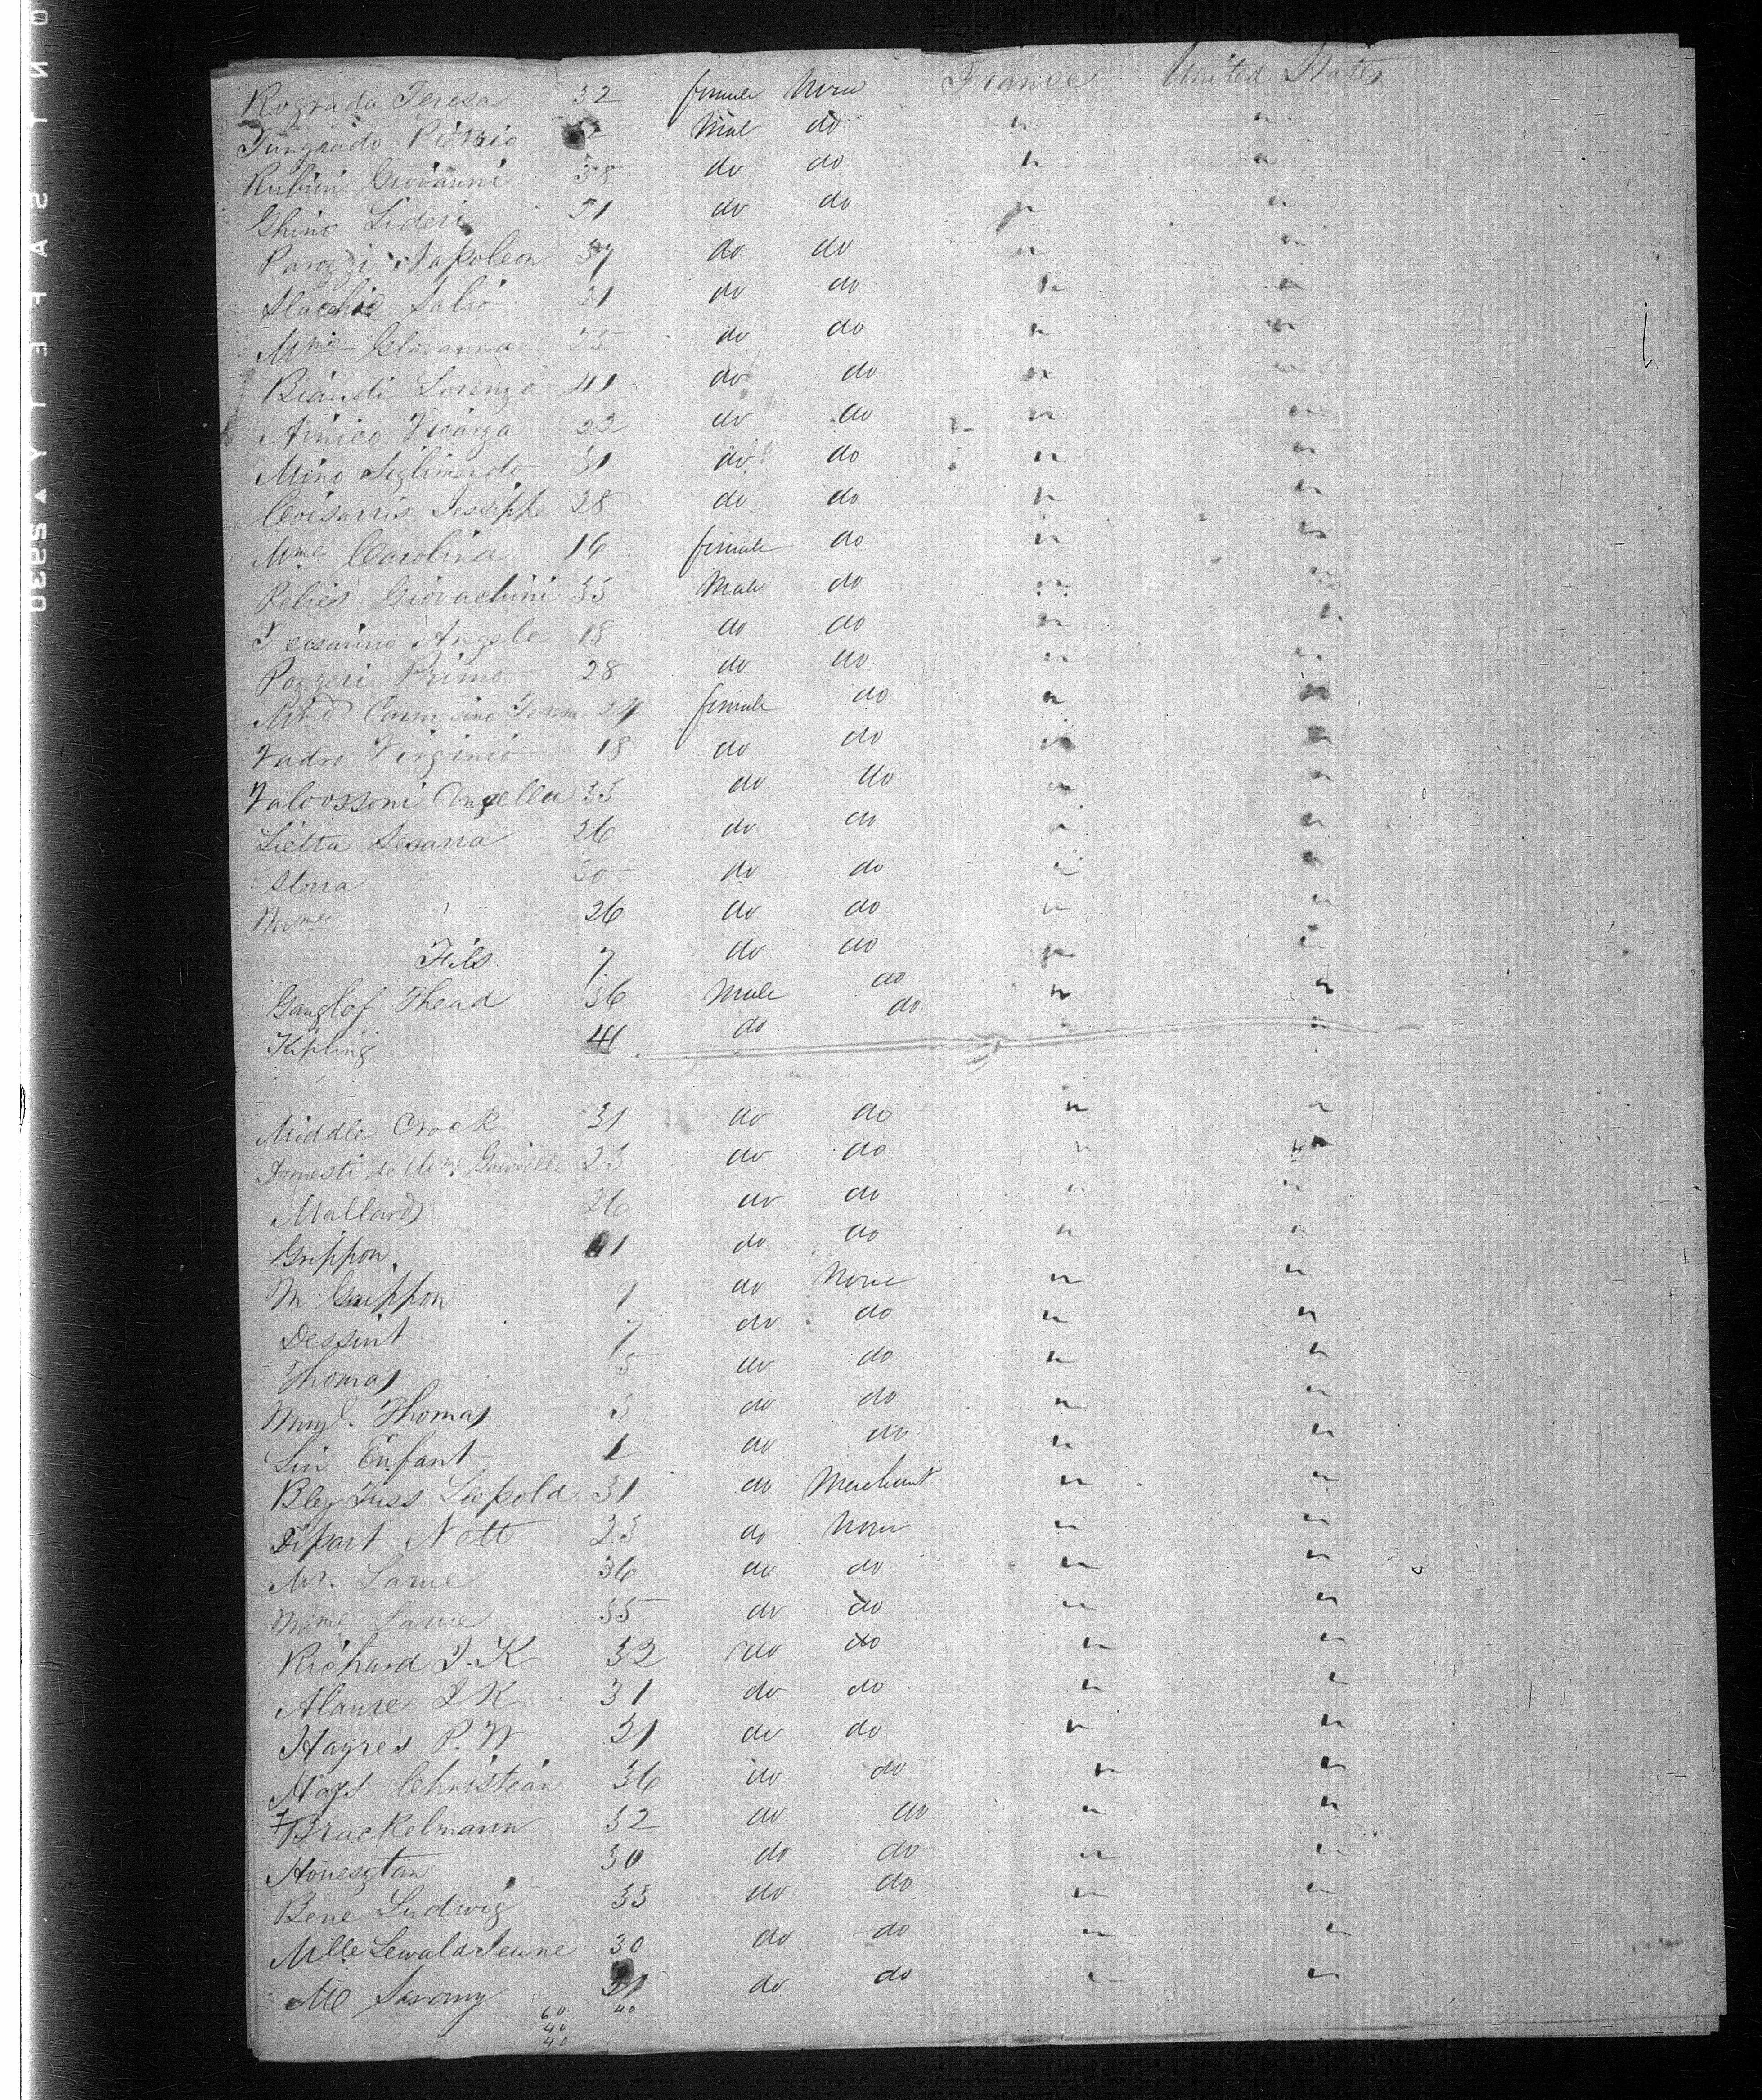 Rograda Teresa 32 female None France United States
Jungrado Pietrio 32 Male do " "
Rubini Giovanni 38 do do " "
Ghino Lideri 21 do do " "
Parozzi Napoleon 37 do do " "
Slachio Salao 21 do do " "
Mme Glovanna 25 do do " "
Biandi Lorenzo 41 do do " "
Ainico Vicanza 22 do do " "
Mino Siglimendo 31 do do " "
Coisarris Jessiphe 28 do do " "
Mme Carolina 16 female do " "
Pelies Giovachini 35 Male do " "
Jecsanno Angele 18 do do " "
Pozzeri Primo 28 do do " "
Mmd Carmesino Teresa 24 female do " "
Vadro Virginio 18 do do " "
Valoossoni Angella 35 do do " "
Lietta Sesarra 26 do do " "
Storra 30 do do " "
26 do do " "
Fils 7 do do " "
Ganglof Thead 36 Male do " "
Kipling 41 do do " "
Middle Crock 31 do do " "
Domesti de Mme Gainville 23 do do " "
Mallard 26 do do " "
Grippon 41 do do " "
M Grippon 9 do None " "
Dessint 7 do do " "
Thomas 5 do do " "
Thomas 3 do do " "
Sin Enfant 1 do do " "
Bley Juss Leopold 31 do Merchant " "
Dipart Nett 23 do None " "
Mr. Larue 36 do do " "
Mme Larue 35 do do " "
Richard J. K 32 do do " "
Alaure J K 31 do do " "
Hayres P. W 31 do do " "
Hays Christian 36 do do " "
Brackelmann 32 do do " "
Honesztan 30 do do " "
Bene Ludwig 33 do do " "
Mlle Lewald Jeune 30 do do " "
Me Savomy 31 do do " "
60 40
40
40